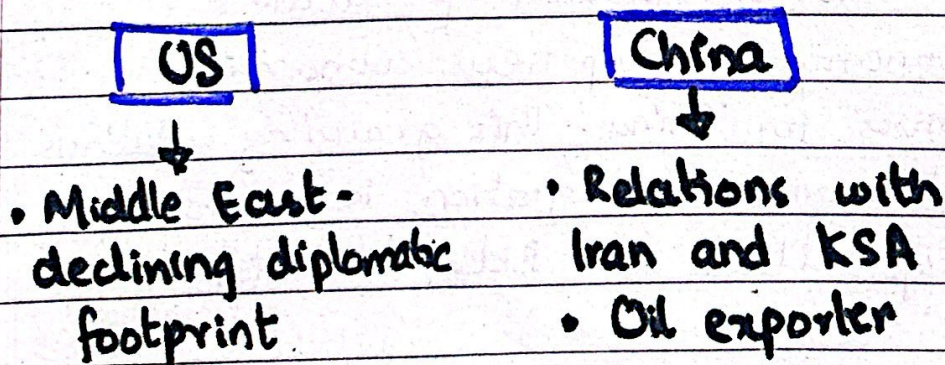 US
China
• Middle East -
declining diplomatic
footprint
• Relations with
Iran and KSA
• Oil exporter